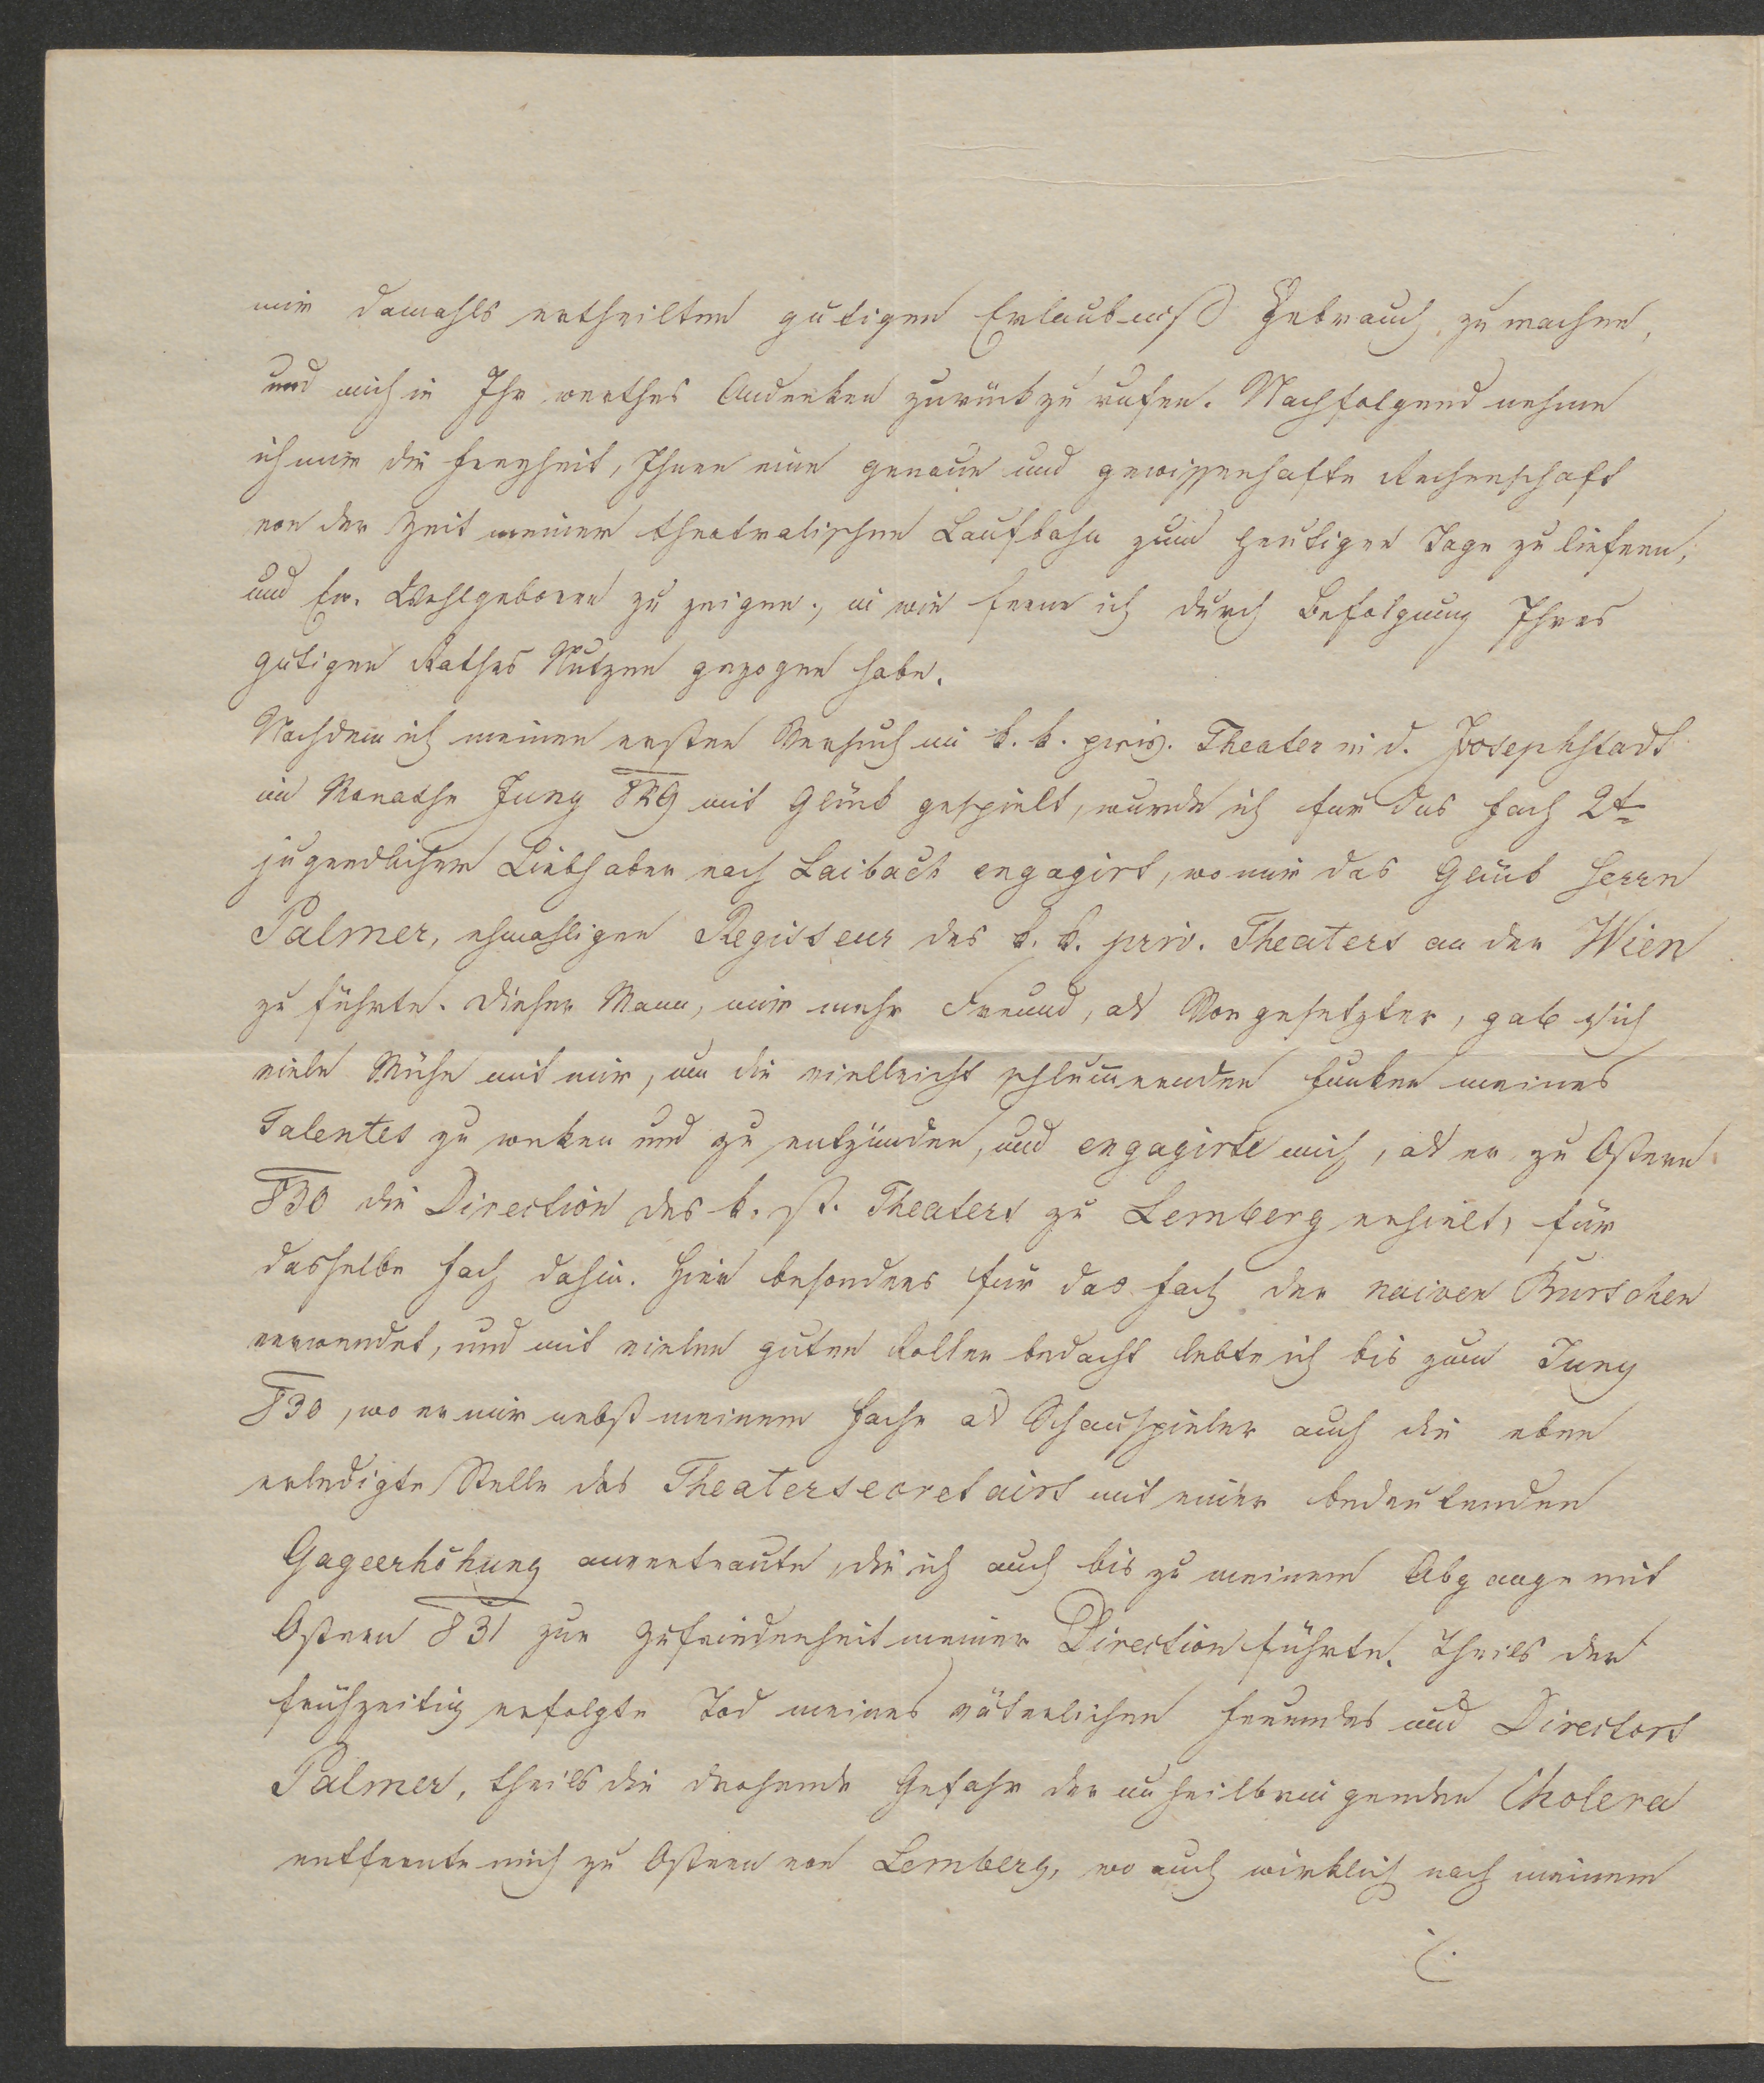 mir damahls ertheilten gütigen Erlaubniß Gebrauch zu machen,
und mich in Ihr werthes Andenken zurückzu rufen. Nachfolgend nehme
ich mir die Freyheit, Ihnen eine genaue und gewissenhafte Rechenschaft
von der Zeit meiner theatralischen Laufbahn zum heutigen Tage zu liefern,
und Ew. Wohlgeboren zu zeigen, in wie ferne ich durch Befolgung Ihres
gütigen Rathes Nutzen gezogen habe.
Nachdem ich meinen ersten Versuch im k. k. priv. Theater in d. Josephstadt
im Monathe Juny 829 mit Glück gespielt, wurde ich für das Fach 2ter
jugendlicher Liebhaber nach Laibach engagirt, wo mir das Glück Herrn
Palmer, ehmahligen Regisseur des k. k. priv. Theaters an der Wien
zu führte. Dieser Mann, mir mehr Freund, als Vorgesetzter, gab sich
viele Mühe mit mir, um die vielleicht schlum̅ernden Funken meines
Talentes zu wecken und zu entzünden, und engagirte mich, als er zu Ostern
830 die Direction des k. st. Theaters zu Lemberg erhielt, für
dasselbe Fach dahin. Hier besonders für das Fach der naiven Burschen
verwendet, und mit vielen guten Rollen bedacht lebte ich bis zum Juny
830, wo er mir nebst meinem Fache als Schauspieler auch die eben
erledigte Stelle des Theatersecretairs mit einer bedeutenden
Gageerhöhung anvertraute, die ich auch bis zu meinem Abgange mit
Ostern 831 zur Zufriedenheit meiner Direction führte. Theils der
frühzeitig erfolgte Tod meines väterlichen Freundes und Directors
Palmer, theils die drohende Gefahr der unheilbringenden Cholera
entfernte mich zu Ostern von Lemberg, wo auch wirklich nach meinem